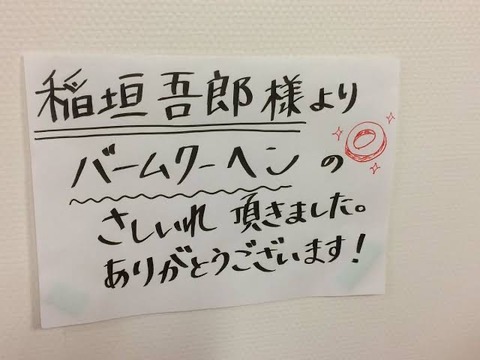 稲垣吾郎様より
バームクーヘンの
さしいれ 頂きました。
ありがとうございます!